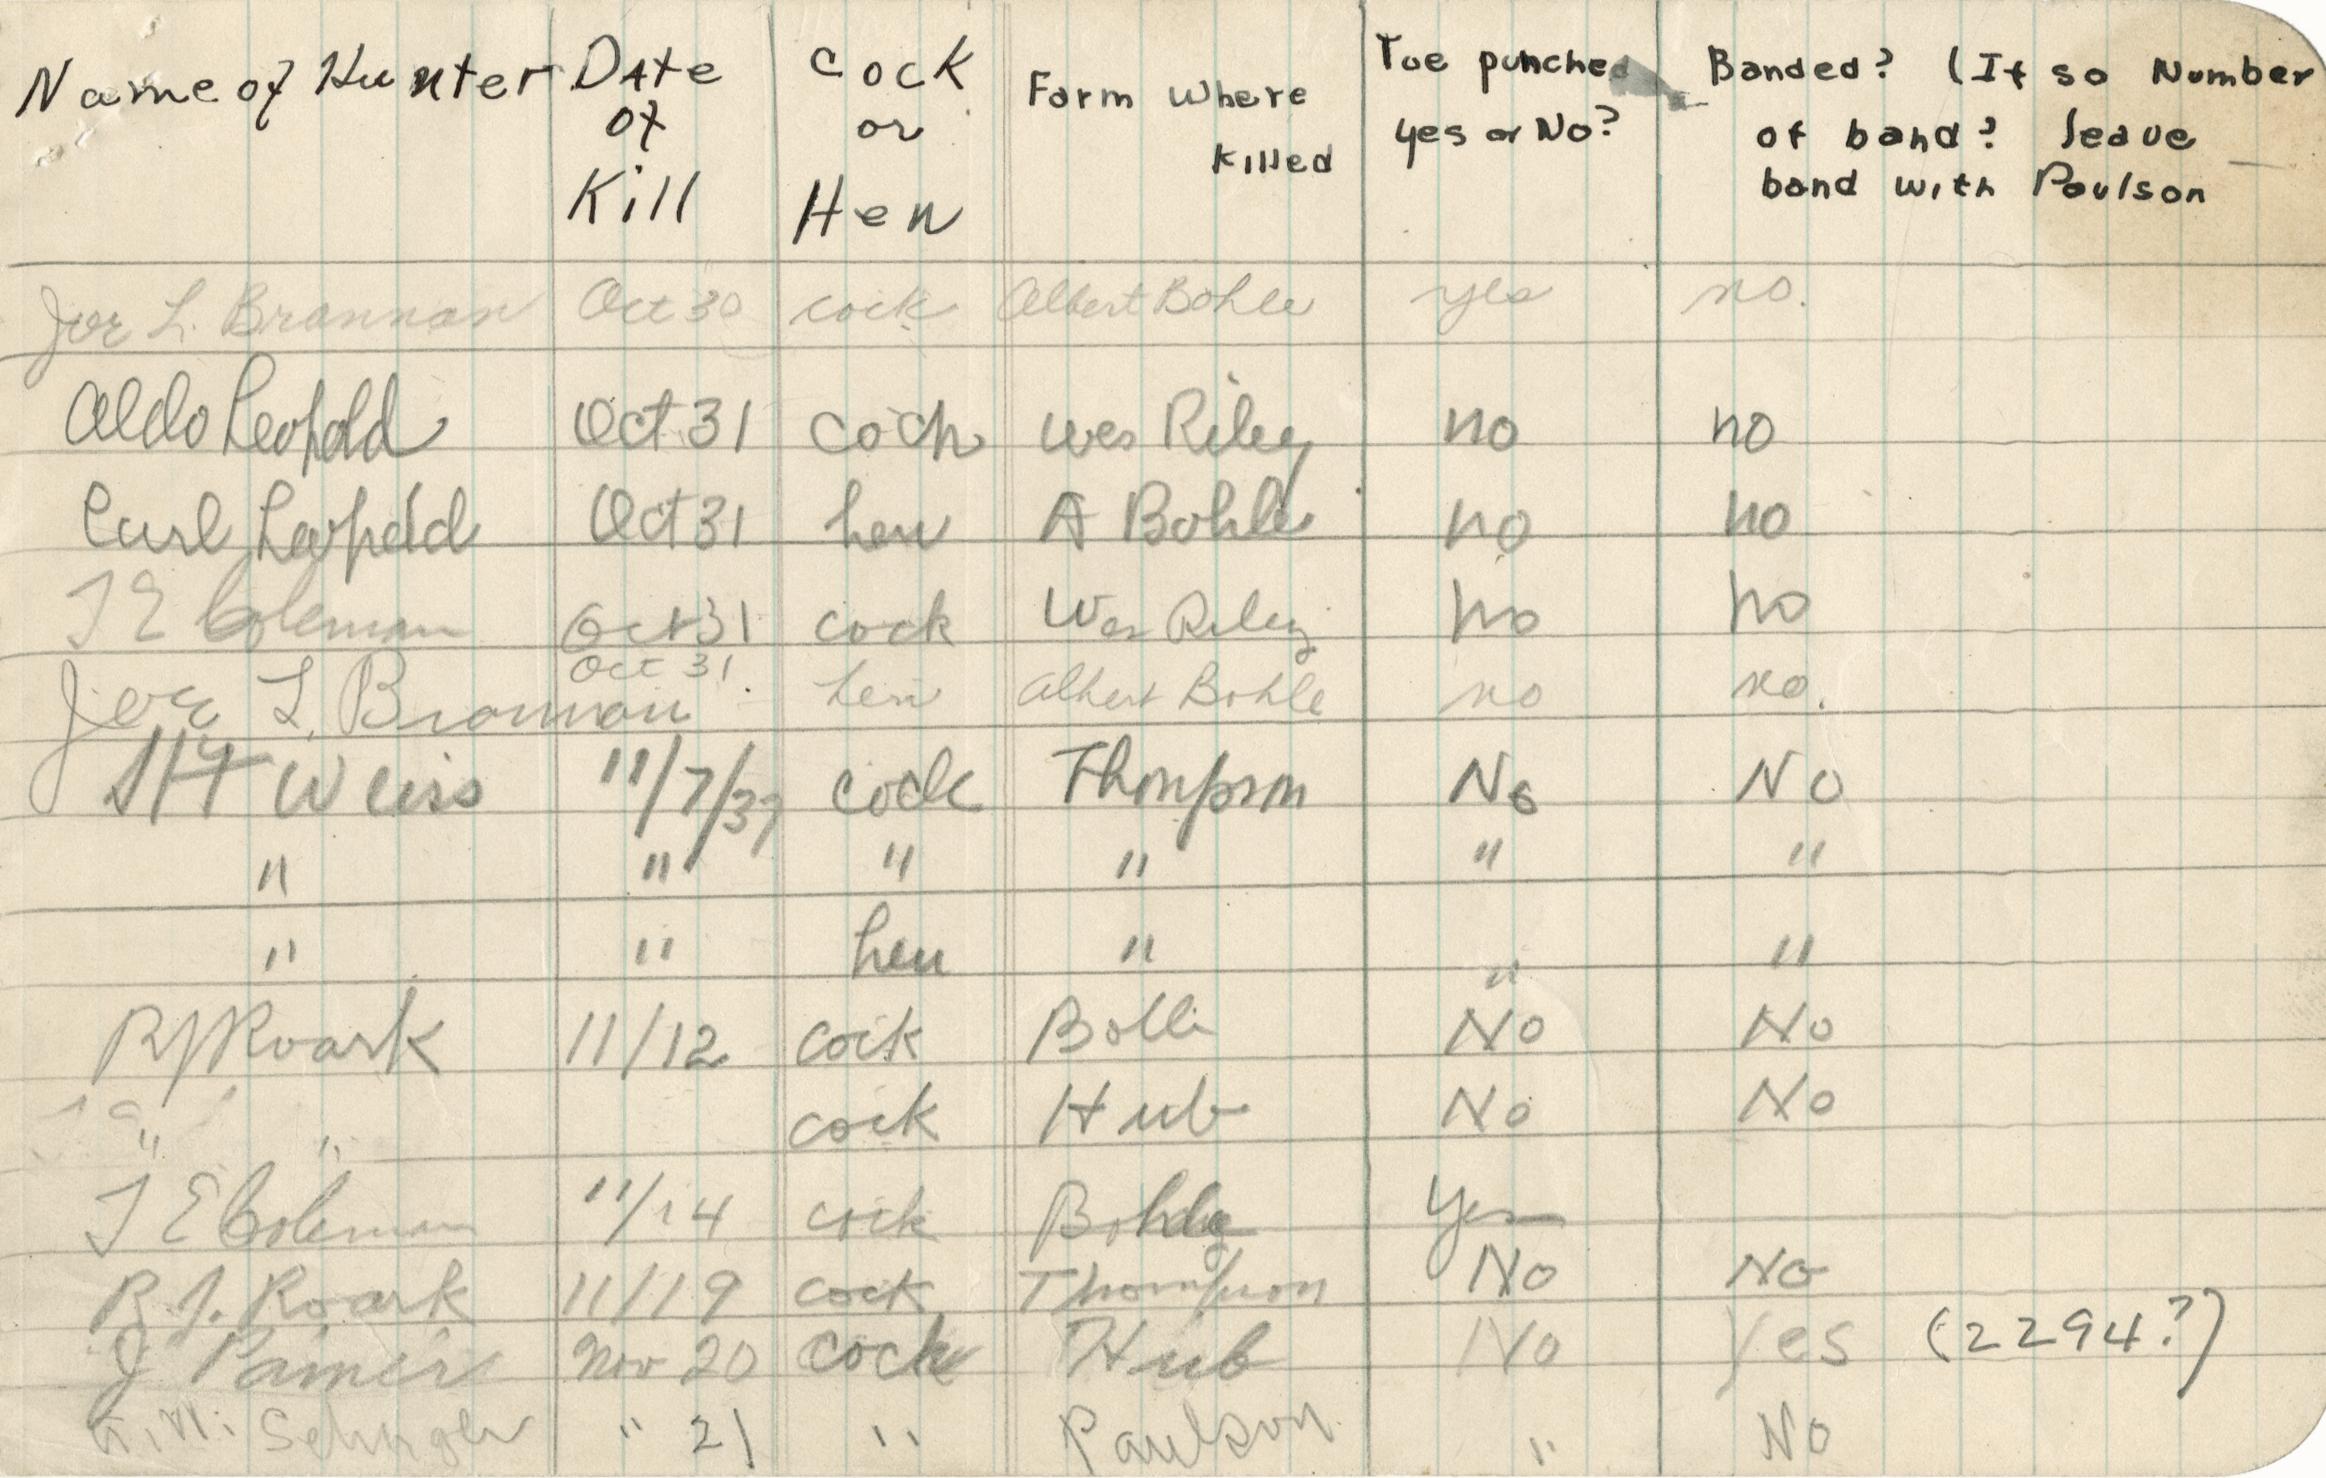 Name of Hunter Date of Kill Cock or Hen Farm Where Killed Toe punched yes or No? Banded? (If so Number of band? leave band with Paulson
Joe L. Brannan Oct 30 cock Albert Bohle yes no.
Aldo Leopold Oct 31 cock Wes Riley no no
Carl Leopold Oct 31 hen A Bohle no no
T E Coleman Oct 31 cock Wes Riley no no
Joe L. Brannan Oct 31. hen Albert Bohle no no.
Weiss 11/7/37 cock Thompson No No
" " " " " "
" " hen " " "
R J Roark 11/12 cock No No
" " cock Hub No No
T E Coleman 11/14 cock Yes
R. J. Roark 11/19 cock Thompson No No
J Nov 20 cock Hub No Yes (2294?)
" 21 " Paulson " No